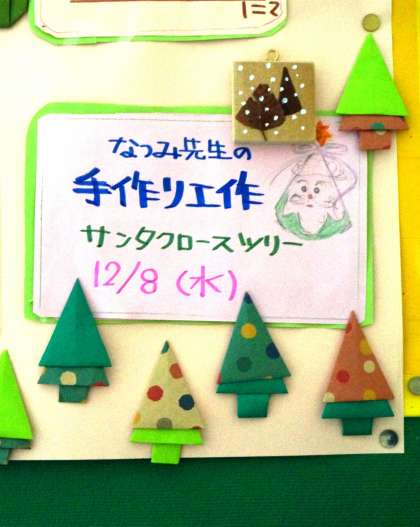 1=2
なつみ先生の
手作り工作
サンタクロースツリー
12/8 (水)